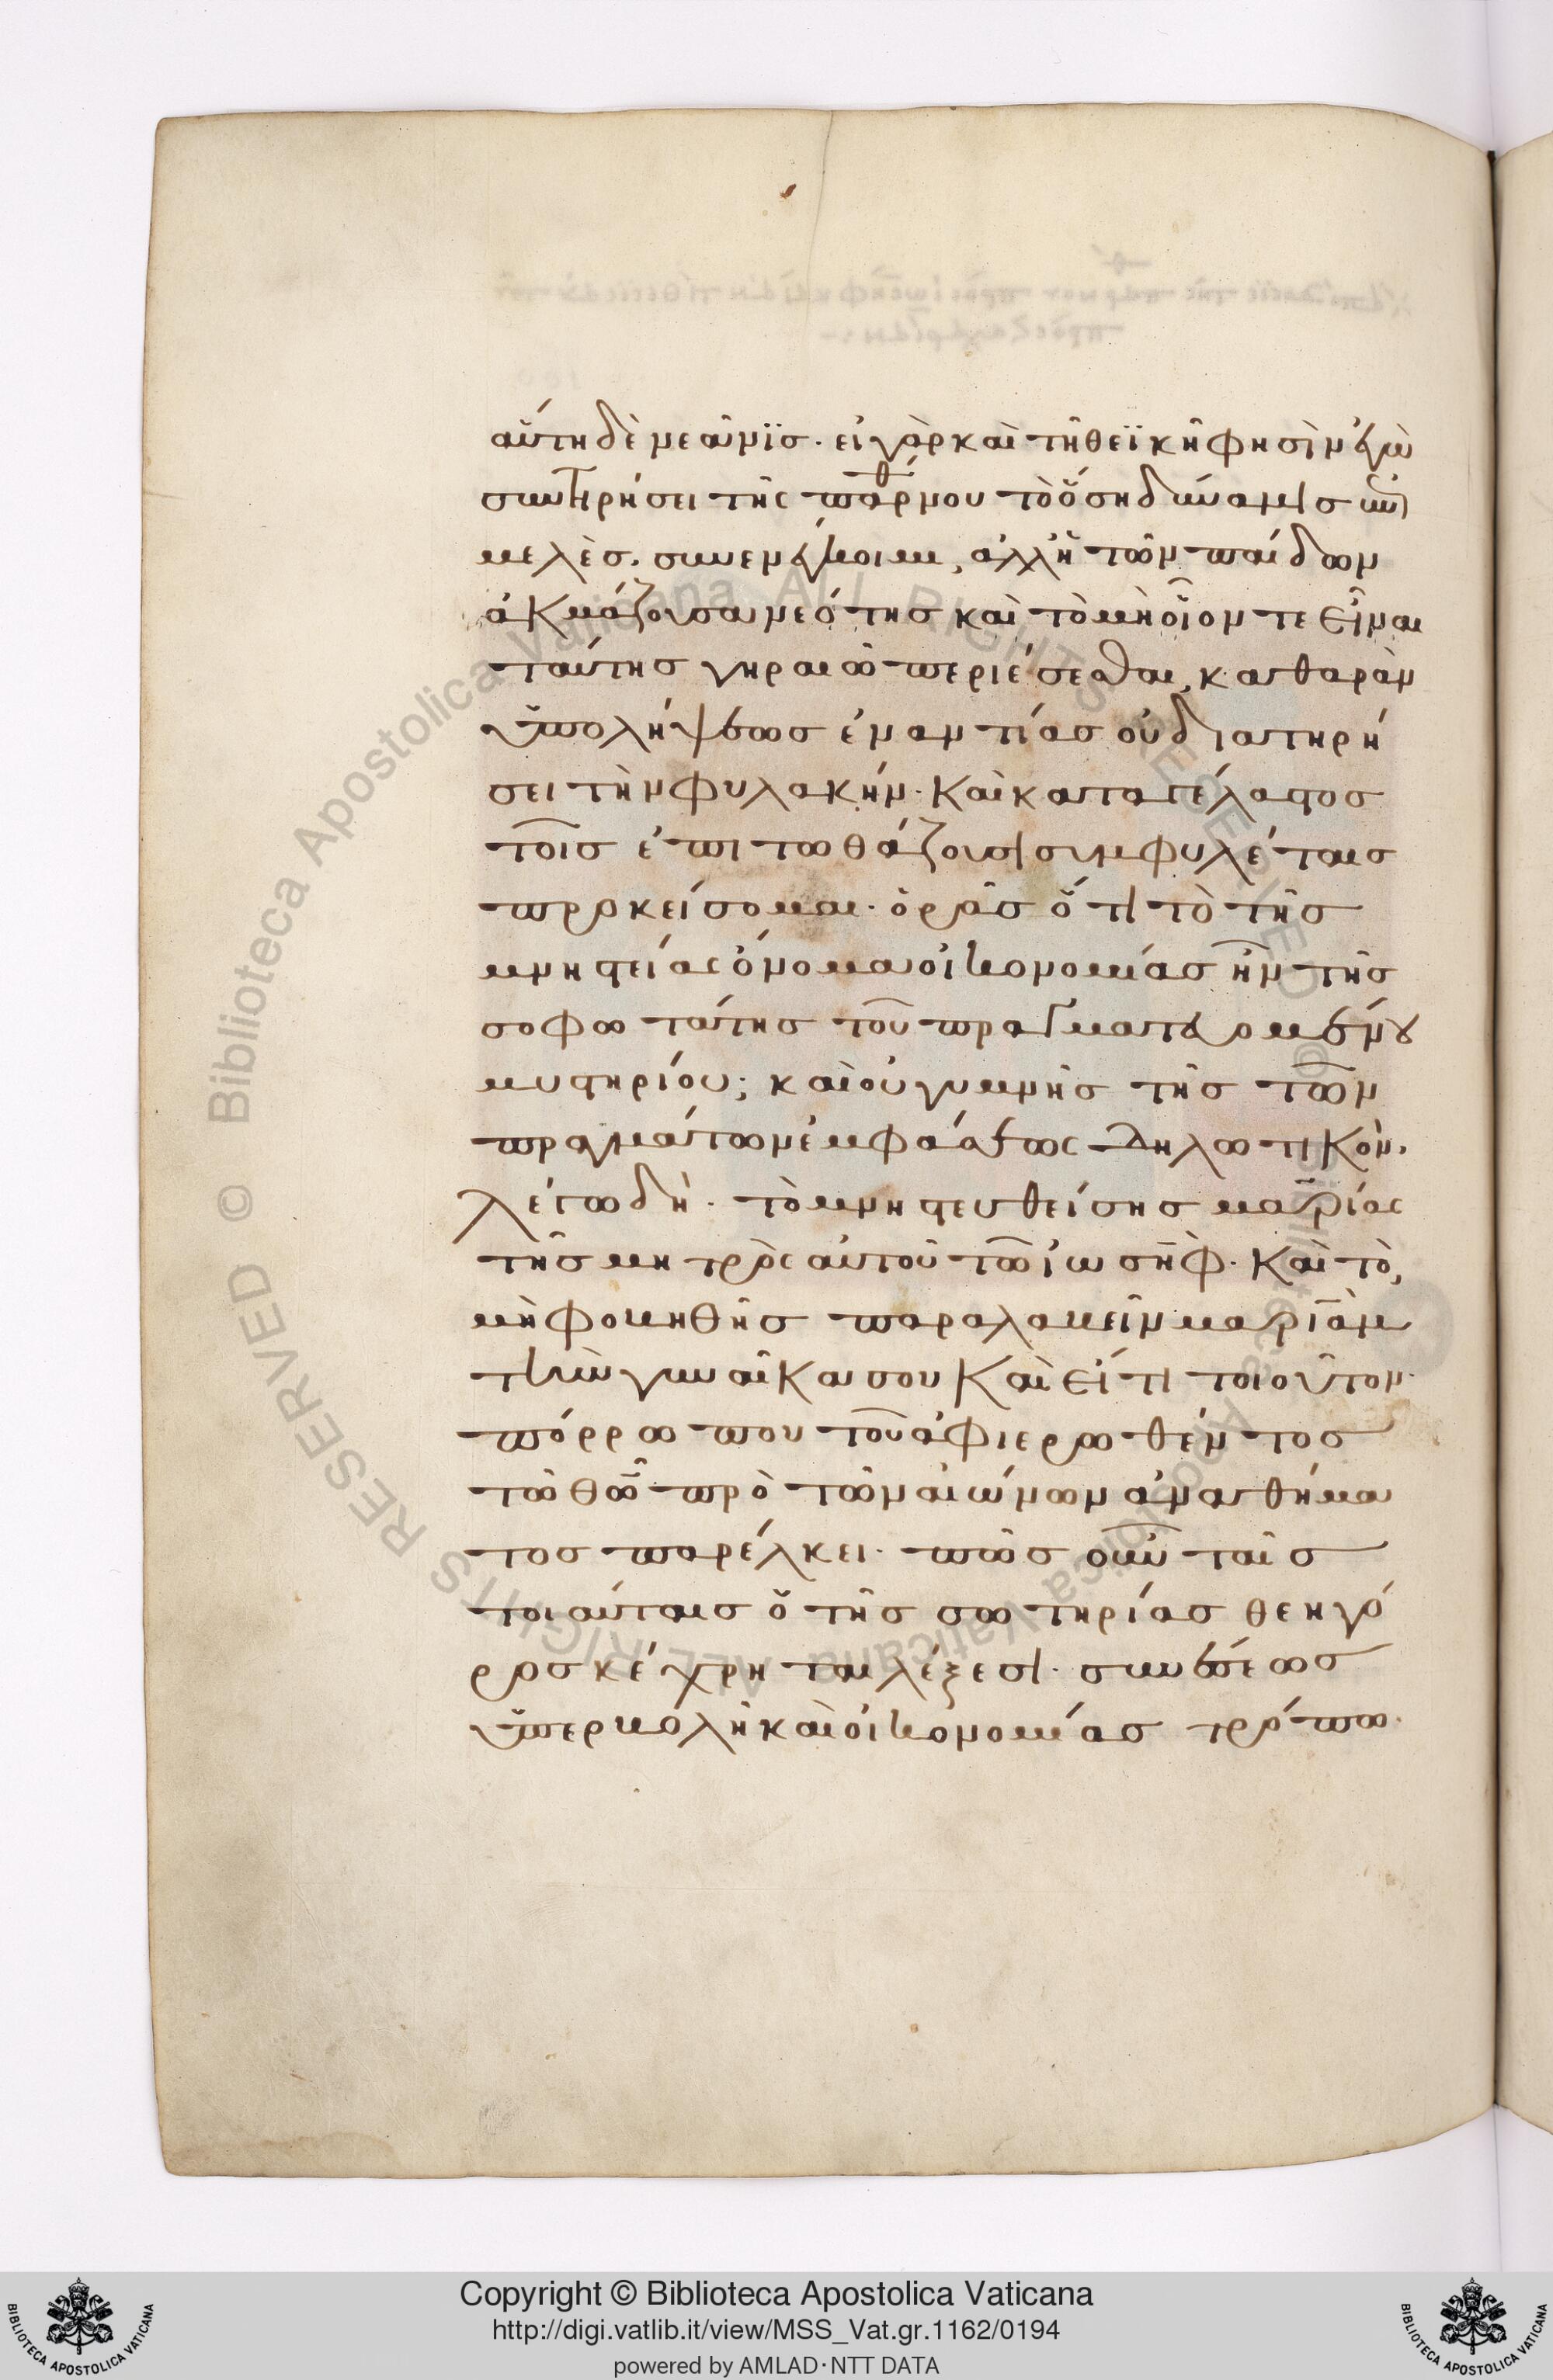 αὕτη δὲ νεᾶνϊς· εἰ γὰρ καὶ τῆ θεϊκῆ φησὶν ἐγὼ
συντηρήσει τῆς παρθένου τὸ ὅση δύναμις ἐμ
μελὲς συνεμβαίνοιμι, ἀλλ' ἡ τῶν παίδων
ἀκμάζουσα νεότης καὶ τὸ μὴ οἷον τε εἶναι
ταύτης γηραιῶ περιέσεσθαι, καθαρὰν
ὑπολήψεως ἐναντίας οὐ διατηρή
σει τὴν φυλακήν· καὶ καταγέλαστος
τοῖς ἐπιτωθάζουσι συμφυλέταις
προκείσομαι· ὁρᾶς ὅτι τὸ τῆς
μνηστείας ὄνομα οἰκονομίας ἦν τῆς
σοφωτάτης τοῦ πραγματευομένου
μυστηρίου; καὶ οὐ γυμνῆς τῆς τῶν
πραγμάτων ἐμφάσεως δηλωτικόν·
λέγω δὴ· τὸ μνηστευθείσης μαρίας
τῆς μητρὸς αὐτοῦ τῶ ἰωσὴφ· καὶ τὸ,
μὴ φοβηθῆς παραλαβεῖν μαριὰμ
τὴν γυναῖκα σου καὶ εἴ τι τοιοῦτον·
πόρρω που τοῦ ἀφιερωθέντος
τῶ θῶ πρὸ τῶν αἰώνων ἀναθήμα
τος παρέλκει· πῶς οὖν ταῖς
τοιαύταις ὁ τῆς σωτηρίας θεηγό
ρος κέχρηται λέξεσι· συνέσεως
ὑπερβολῆ καὶ οἰκονομίας τρόπω·
Copyright © Biblioteca Apostolica Vaticana
http://digi.vatlib.it/view/MSS_Vat.gr.1162/0194
powered by AMLAD·NTT DATA